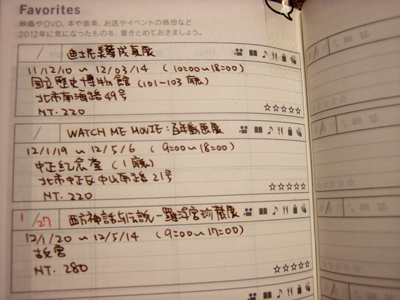 Favorites
映画やDVD、本や音楽、お店やイベントの感想など
2012年に気になったものを、書きとめておきましょう。
迪士尼美夢成真展
11/12/10 ~ 12/03/14 (10:00~18:00)
國立歷史博物館 (101~103廳)
北市南海路49号
NT. 220
☆☆☆☆☆
WATCH ME MOVE:百年動畫展
12/1/19 ~ 12/5/6 (9:00~18:00)
中正紀念堂 (1廳)
北市中正区中山南路21号
NT. 220
☆☆☆☆☆
1/27 西方神話與傳說-羅浮宮珍藏展
12/1/20 ~ 12/5/14 (9:00~17:00)
故宮
NT. 280
☆☆☆☆☆